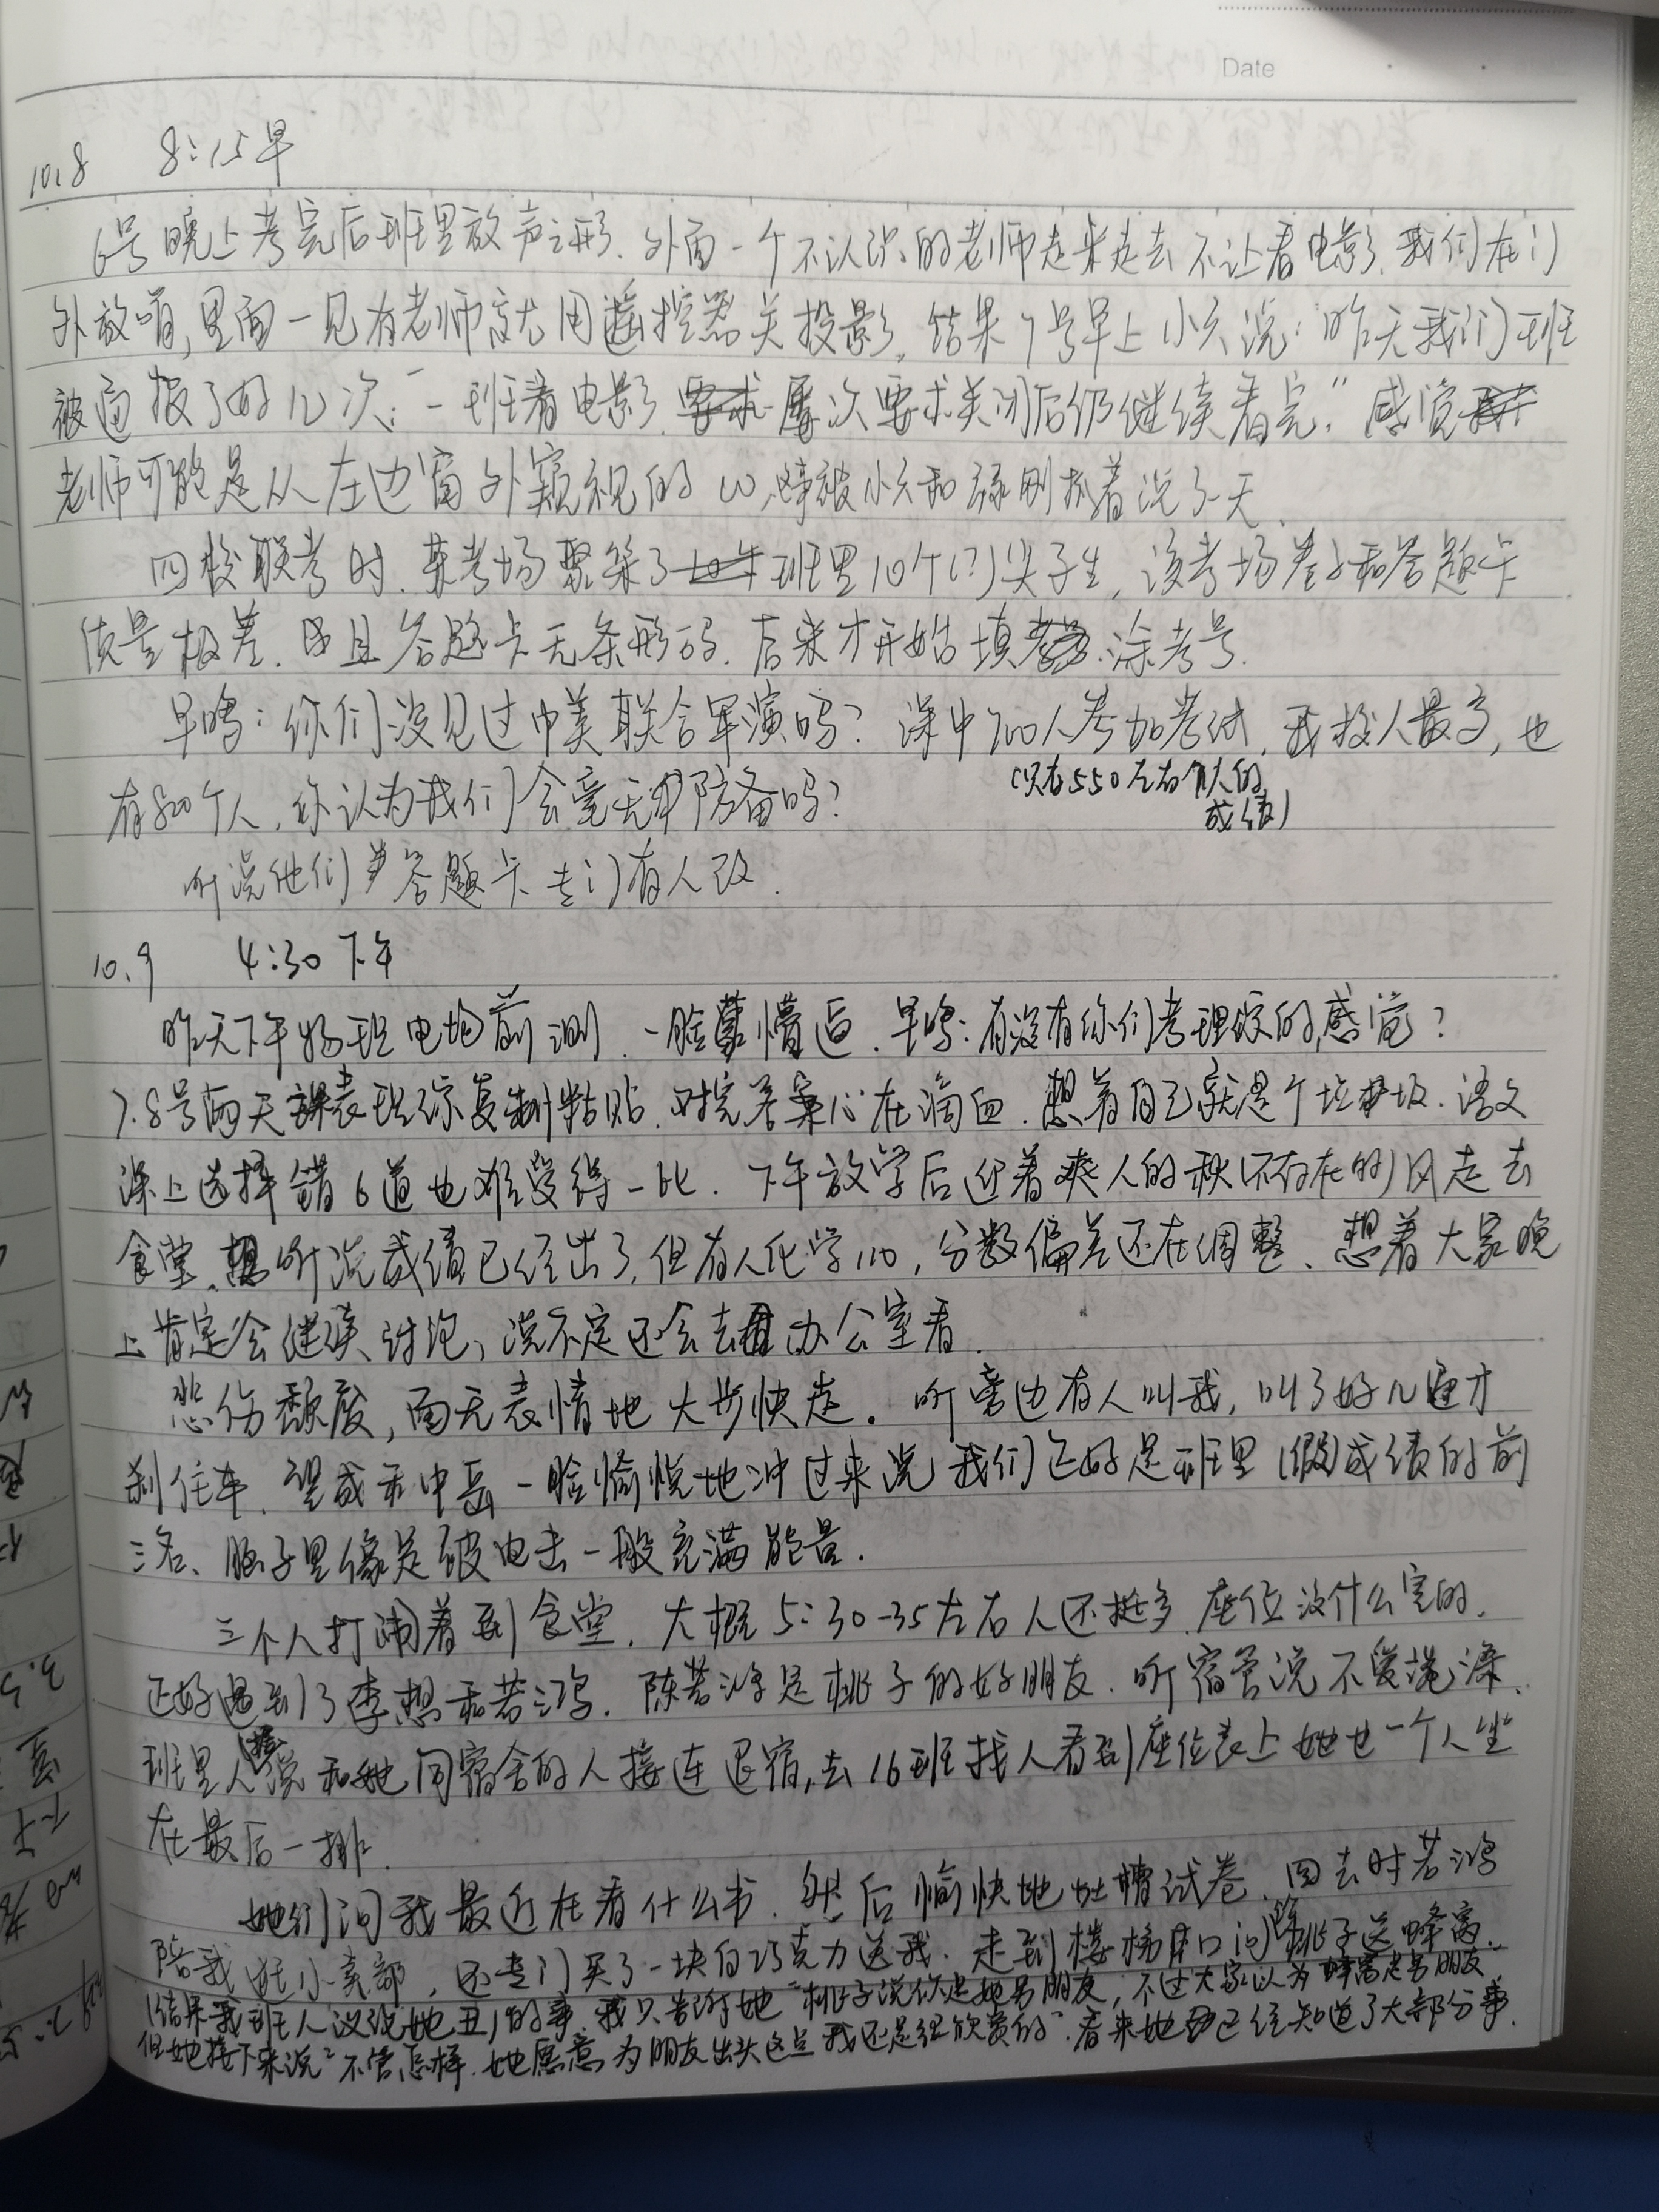 Date
10.8 8:15早
6号晚上考完后班里放声之形.外面一个不认识的老师走来走去不让看电影.我们在门
外放哨,里面一见有老师就用遥控器关投影.结果7号早上小六说:"昨天我们班
被通报了好几次:"一班看电影屡次要求关闭后仍继续看完."感觉
老师可能是从左边窗外窥视的 被小六和 刚抓着说了一天.
四校联考时.某考场聚集了班里10个(?)尖子生,该考场卷子和答题卡
质量极差.且答题卡无条形码.后来才开始填.涂考号.
早鸣:你们没见过中美联合军演吗?深中700人参加考试,我校人最多,也
(只有550左右个人的
成绩)
有800个人,你认为我们会毫无防备吗?
听说他们答题卡专门有人改.
10.9 4:30下午
昨天下午物理电场前测.一脸懵逼.早鸣:有没有你们考理综的感觉?
7.8号两天课表理综复制粘贴.对完答案心在滴血.想着自己就是个垃圾.语文
课上选择错6道也难受得一比.下午放学后迎着爽人的秋(不存在的)风走去
食堂.听说成绩已经出了,但有人化学110,分数偏差还在调整、想着大家晚
上肯定会继续讨论,说不定还会去办公室看.
悲伤颓废,面无表情地大步快走.听旁边有人叫我,叫了好几遍才
刹住车.望成和中岳一脸愉悦地冲过来说我们正好是班里(假)成绩的前
三名、脑子里像是被电击一般充满能量.
三个人打闹着到食堂.大概5:30-35左右人还挺多.座位没什么空的.
正好遇到了李想和若鸿.陈若鸿是桃子的好朋友.听宿管说不爱洗澡、
班里人说和她同宿舍的人接连退宿,去16班找人看到座位表上她也一个人坐
在最后一排.
她们问我最近在看什么书.然后愉快地吐槽试卷.回去时若鸿
陪我逛小卖部,还专门买了一块白巧克力送我.走到楼梯口问桃子送蜂窝.
(结果我班人议论她丑)的事.我只告诉她"桃子说你是她男朋友,不过大家以为蜂窝是男朋友
但她接下来说"不管怎样.她愿意为朋友出头这点我还是很欣赏的".看来她已经知道了大部分事.